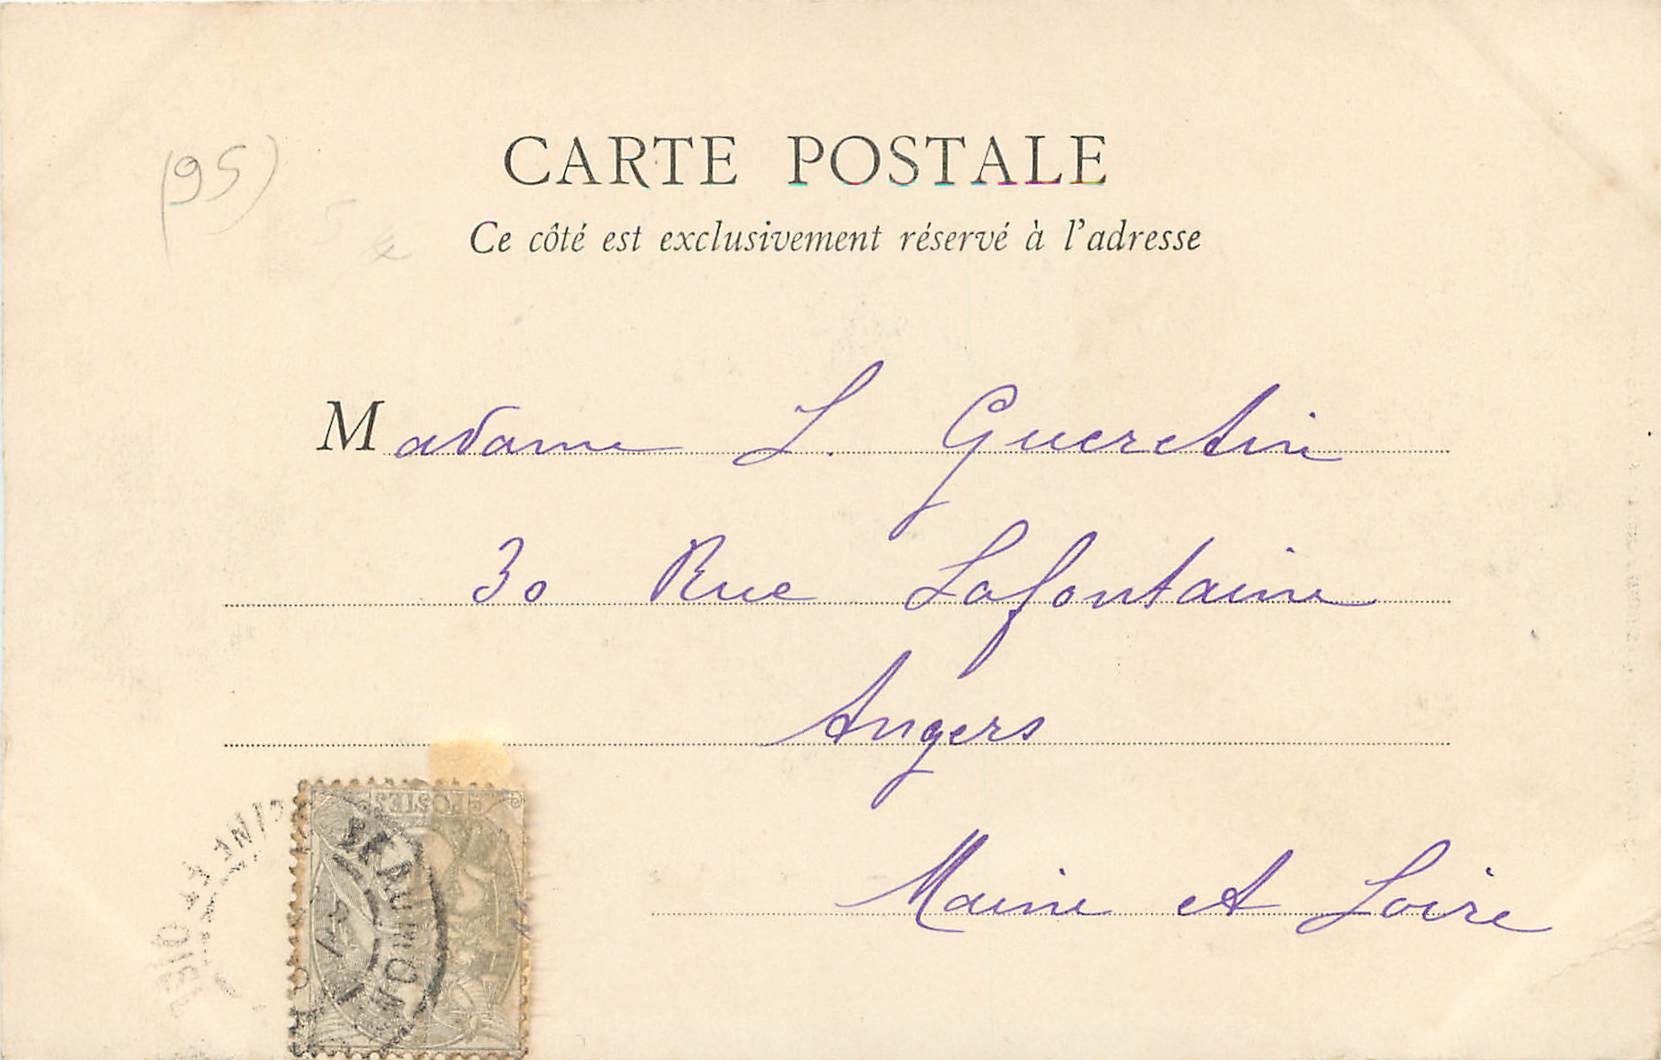 (95)
CARTE POSTALE
Ce côté est exclusivement réservé à l'adresse
Madame L. Guerctin
30 Rue Lafontaine
Angers
Maine et Loire
POSTES
BEAUMONT
SEINE ET OISE